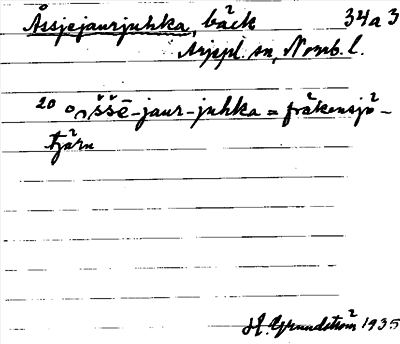 Åssjejaurjuhka, bäck 34a3
Arjepl. sn, Norrb. l.
20 o͔ššē-jaur-juhka = fräkensjö-
tjärn
H. Grundström 1935